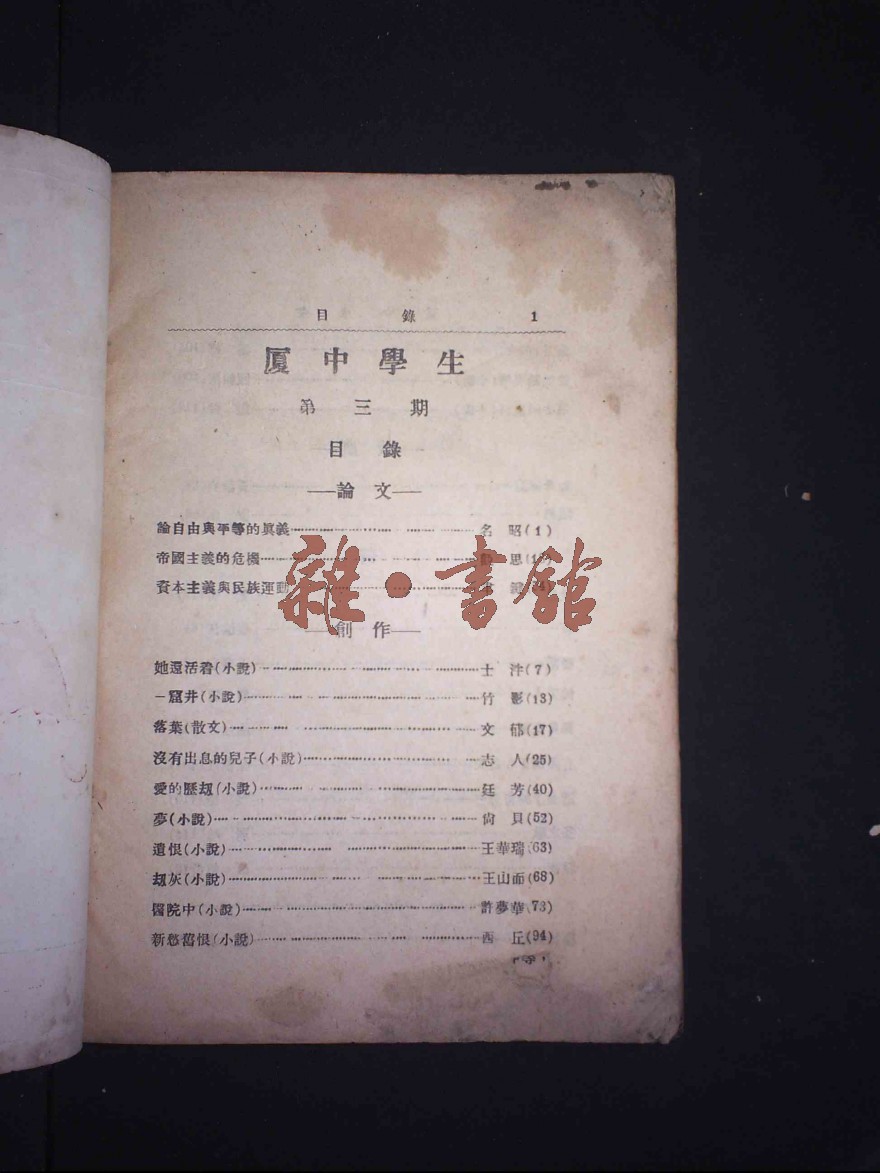 目錄 1
厦中學生
第三期
目錄
—論文—
論自由與平等的眞義 名昭(1)
帝國主義的危機 思
資本主義與民族運動
雜·書館
—創作—
她還活着(小說) 士泮(7)
一窟井(小說) 竹影(13)
落葉(散文) 文郁(17)
沒有出息的兒子(小說) 志人(25)
愛的歷刼(小說) 廷芳(40)
夢(小說) 尙貝(52)
遺恨(小說) 王華瑞(63)
刼灰(小說) 王山而(68)
醫院中(小說) 許夢華(73)
新愁舊恨(小說) 西丘(94)